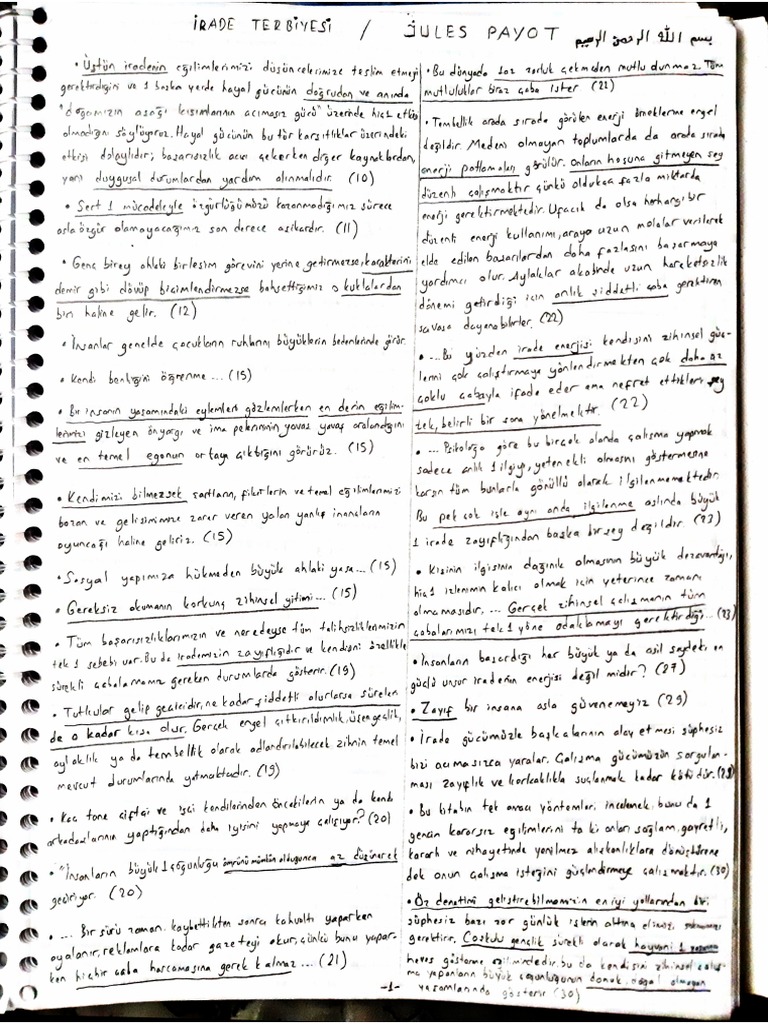 İRADE TERBİYESİ / JULES PAYOT بسم الله الرحمن الرحيم
• Üstün iradenin eğilimlerimizi düşüncelerimize teslim etmeyi
gerektirdiğini ve 1 başka yerde hayal gücünün doğrudan ve anında
"doğamızın aşağı kısımlarının acımasız gücü" üzerinde hiç 1 etkisi
olmadığını söylüyoruz. Hayal gücünün bu tür karşıtlıklar üzerindeki
etkisi dolaylıdır; başarısızlık acısı çekerken diğer kaynaklardan,
yani duygusal durumlardan yardım alınmalıdır. (10)
• Sert 1 mücadeleyle özgürlüğümüzü kazanmadığımız sürece
asla özgür olamayacağımız son derece aşikardır. (11)
• Genç birey ahlaki birleşim görevini yerine getirmezse, karakterini
demir gibi dövüp biçimlendirmezse bahsettiğimiz o kuklalardan
biri haline gelir. (12)
• İnsanlar genelde çocukların ruhlarını büyüklerin bedenlerinde görür.
• Kendi benliğini öğrenme... (15)
• Bir insanın yaşamındaki eylemleri gözlemlerken en derin eğilim-
lerimizi gizleyen önyargı ve ima peçesinin yavaş yavaş aralandığını
ve en temel egonun ortaya çıktığını görürüz. (15)
• Kendimizi bilmezsek şartların, fikirlerin ve temel eğilimlerimizi
bozan ve gelişimimize zarar veren yalan yanlış inançların
oyuncağı haline geliriz. (15)
• Sosyal yapımıza hükmeden büyük ahlaki yasa... (15)
• Gereksiz okumanın korkunç zihinsel yitimi... (15)
• Tüm başarısızlıklarımızın ve neredeyse tüm talihsizliklerimizin
tek 1 sebebi var. Bu da irademizin zayıflığıdır ve kendisini özellikle
sürekli çabalamamız gereken durumlarda gösterir. (19)
• Tutkular gelip geçicidir, ne kadar şiddetli olurlarsa süreleri
de o kadar kısa olur. Gerçek engel çıtkırıldımlık, üşengeçlik,
aylaklık ya da tembellik olarak adlandırılabilecek zihnin temel
mevcut durumlarında yatmaktadır. (19)
• Kaç tane çiftçi ve işçi kendilerinden öncekilerin ya da kendi
arkadaşlarının yaptığından daha iyisini yapmaya çalışıyor? (20)
• "İnsanların büyük 1 çoğunluğu ömrünü mümkün olduğunca az düşünerek
geçiriyor. (20)
• ... Bir sürü zaman kaybettikten sonra kahvaltı yaparken
oyalanır, reklamlara kadar gazeteyi okur, çünkü bunu yapar-
ken hiçbir çaba harcamasına gerek kalmaz... (21)
• Bu dünyada 1az zorluk çekmeden mutlu olunmaz. Tüm
mutluluklar biraz çaba ister (21)
• Tembellik arada sırada görülen enerji örneklerine engel
değildir. Medeni olmayan toplumlarda da arada sırada
enerji patlamaları görülür. Onların hoşuna gitmeyen şey
düzenli çalışmaktır çünkü oldukça fazla miktarda
enerji gerektirmektedir. Ufacık da olsa herhangi bir
düzenli enerji kullanımı, araya uzun molalar verilerek
elde edilen başarılardan daha fazlasını başarmaya
yardımcı olur. Aylaklar akabinde uzun hareketsizlik
dönemi getirdiği için anlık şiddetli çaba gerektiren
savaşa dayanabilirler. (22)
• ...Bu yüzden irade enerjisi kendisini zihinsel güç-
lerini çok çalıştırmaya yönlendirmekten çok daha az
çoklu çabayla ifade eder ama nefret ettikleri şey
tek, belirli bir sona yönelmektir. (22)
• ... Psikoloğa göre bu birçok alanda çalışma yapmak
sadece anlık 1 ilgiyi, yetenekli olmasını göstermesine
karşın tüm bunlarla gönüllü olarak ilgilenmemektedir.
Bu pek çok işle aynı anda ilgilenme aslında büyük
1 irade zayıflığından başka bir şey değildir. (23)
• Kişinin ilgisinin dağınık olmasının büyük dezavantajı,
hiç 1 izlenimin kalıcı olmak için yeterince zamanı
olmamasıdır. ... Gerçek zihinsel çalışmanın tüm
çabalarımızı tek 1 yöne odaklamayı gerektirdiği... (23)
• İnsanların başardığı her büyük ya da asil şeydeki en
güçlü unsur iradenin enerjisi değil midir? (27)
• Zayıf bir insana asla güvenemeyiz (29)
• İrade gücümüzle başkalarının alay etmesi şüphesiz
bizi acımasızca yaralar. Çalışma gücümüzün sorgulan-
ması zayıflık ve korkaklıkla suçlanmak kadar kötüdür. (29)
• Bu kitabın tek amacı yöntemleri incelemek, bunu da 1
gencin kararsız eğilimlerini ta ki onları sağlam, gayretli,
kararlı ve nihayetinde yenilmez alışkanlıklara dönüştürene
dek onun çalışma isteğini güçlendirmeye çalışmaktır. (30)
• Öz denetimi geliştirebilmemizin en iyi yollarından biri
şüphesiz bazı zor günlük işlerin altına elimizi
gerektirir. Coşkulu gençlik sürekli olarak hayvani 1 yaşama
heves gösterme eğilimindedir, bu da kendisini zihinsel çalış-
ma yapanların büyük çoğunluğunun donuk, doğal olmayan
yaşamlarında gösterir (30)
-1-